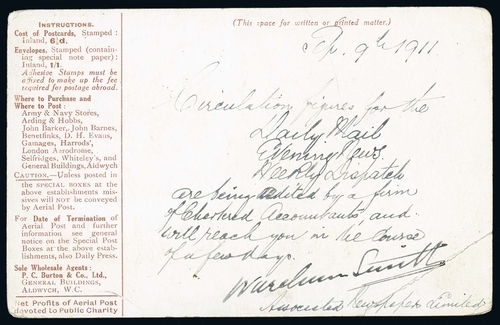 INSTRUCTIONS.
Cost of Postcards, Stamped:
Inland, 6½d.
Envelopes. Stamped (contain-
ing special note paper):
Inland, 1/1.
Adhesive Stamps must be
affixed to make up the fee
required for postage abroad.
Where to Purchase and
Where to Post:
Army & Navy Stores,
Arding & Hobbs,
John Barker, John Barnes,
Benetfinks, D. H. Evans,
Gamages, Harrods',
London Aerodrome,
Selfridges, Whiteley's, and
General Buildings, Aldwych
CAUTION.—Unless posted in
the SPECIAL BOXES at the
above establishments mis-
sives will NOT be conveyed
by Aerial Post.
For Date of Termination of
Aerial Post and further
information see general
notice on the Special Post
Boxes at the above estab-
lishments, also Daily Press.
Sole Wholesale Agents:
P. C. Burton & Co., Ltd.,
GENERAL BUILDINGS,
ALDWYCH, W.C.
Net Profits of Aerial Post
devoted to Public Charity
(This space for written or printed matter.)
Sep. 9th 1911.
Circulation figures for the
Daily Mail
Evening News.
Weekly Dispatch
are being edited by a firm
of Chartered Accountants, and
will reach you in the course
of a few days.
Wareham Smith
Associated Newspapers Limited